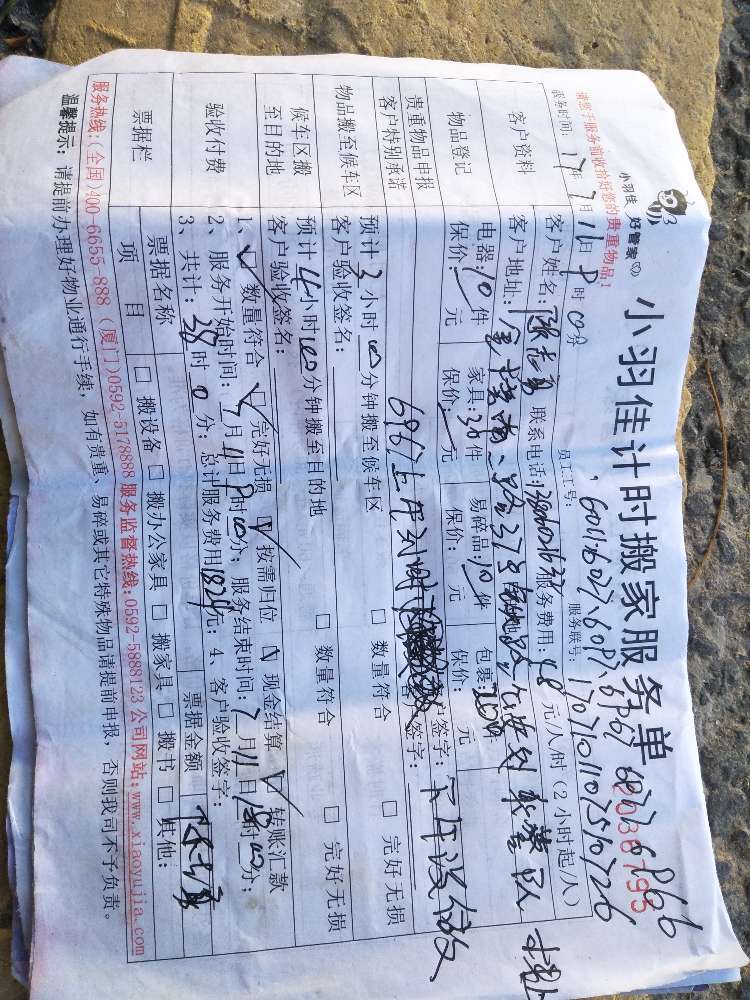 小羽佳 好管家
小羽佳计时搬家服务单
2038795
请您于服务前收拾好您的贵重物品!
服务时间: 17年7月11日8时00分 员工工号:
服务联号: 1707101107510726
客户资料
客户姓名: 联系电话: 服务费用: 48元/人/时(2小时起/人)
客户地址:
物品登记
电器: 10件 家具: 30件 易碎品: 10件 包裹: 200件
保价: 元 保价: 元 保价: 元 保价: 元
贵重物品申报
客户特别承诺
客户签字:
下午没做
物品搬至候车区
预计3小时00分钟搬至候车区
□ 数量符合 □ 完好无损
客户验收签名:
候车区搬
至目的地
预计4小时00分钟搬至目的地
□ 数量符合 □ 完好无损
客户验收签名:
验收付费
1、 数量符合 完好无损 按需归位 现金结算 转账汇款
2、服务开始时间: 7月11日8时00分; 服务结束时间: 7月11日18时00分;
3、共计: 38时0分; 总计服务费用1824元; 4、客户验收签字:
票据栏
票据名称 票据金额
项 目 □ 搬设备 □ 搬办公家具 □ 搬家具 □ 搬书 □ 其他:
服务热线:(全国)400-6655-888 (厦门)0592-5178888 服务监督热线:0592-5888123 公司网站:www.xiaoyujia.com
温馨提示: 请提前办理好物业通行手续, 如有贵重、易碎或其它特殊物品请提前申报, 否则我司不予负责。